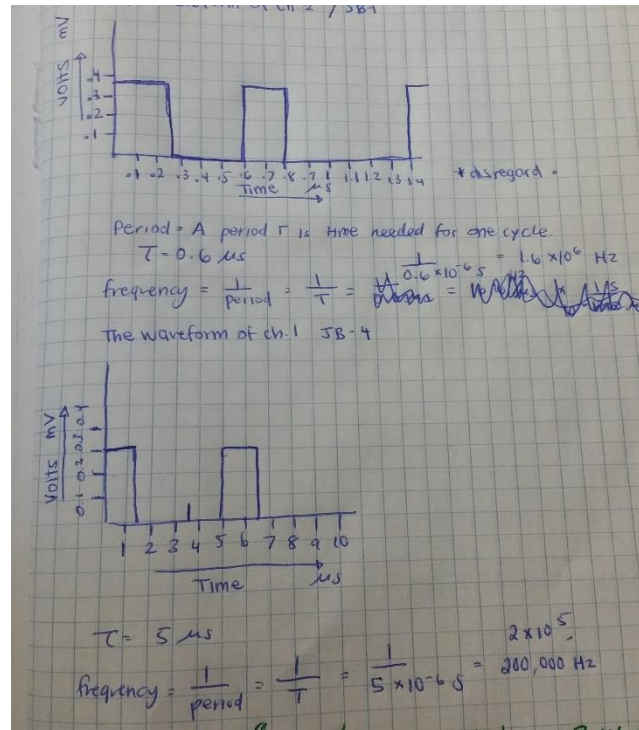 of ch-2 / JB-1
Volts mV
.4
.3
.2
.1
.1 .2 .3 .4 .5 .6 .7 .8 .9 1 1.1 1.2 1.3 1.4
Time μs
* disregard .
Period = A period T is time needed for one cycle.
T = 0.6 μs
frequency = 1/period = 1/T = 1/0.6 x10-6 s = 1.6 x106 Hz
The waveform of ch.1 JB-4
Volts mV
0.1 0.2 0.3 0.4
1 2 3 4 5 6 7 8 9 10
Time μs
T = 5 μs
frequency = 1/period = 1/T = 1/5 x10-6 s = 2 x 10 5.
200,000 Hz